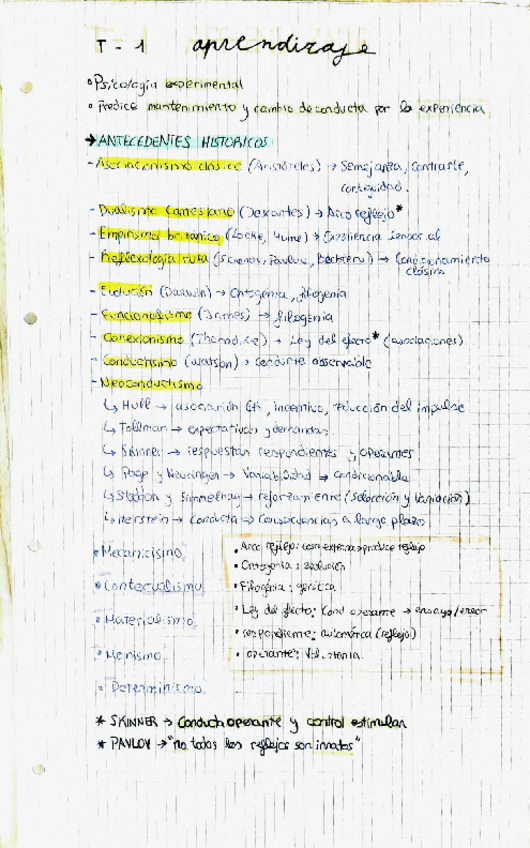 T - 1 aprendizaje
• Psicología experimental
• Predice mantenimiento y cambio de conducta por la experiencia
→ ANTECEDENTES HISTORICOS
- Asociacionismo clásico (Aristóteles) → Semejanza, contraste,
contiguidad.
- Dualismo Cartesiano (Descartes) → Arco reflejo*
- Empirismo britanico (Locke, Hume) → Experiencia sensorial
- Reflexología rusa (Sechenov, Pavlov, Bechterev) → Condicionamiento
clásico
- Evolución (Darwin) → Ontogénia, filogenia
- Funcionalismo (James) → filogenia
- Conexionismo (Thorndike) → Ley del efecto* (asociaciones)
- Conductismo (Watson) → conducta observable
- Neoconductismo
↳ Hull → asociación ER, incentivo, reducción del impulso
↳ Tollman → expectativas y demandas
↳ Skinner → respuestas respondientes y operantes
↳ Page y Neuringer → Variabilidad → condicionable
↳ Staddon y Simmelhag → reforzamiento (selección y variación)
↳ Herstein → Conducta → Consecuencias a largo plazo
• Mecanicismo
• Contextualismo
• Materialismo
• Monismo
• Determinismo
• Arco reflejo: causa externa produce reflejo
• Ontogenia: evolución
• Filogénia: genética
• Ley del efecto: Cond operante → ensayo/error
• respondiente: automática (reflejo)
• operante: Voluntaria.
* SKINNER → Conducta operante y control estimular
* PAVLOV → "no todos los reflejos son innatos"